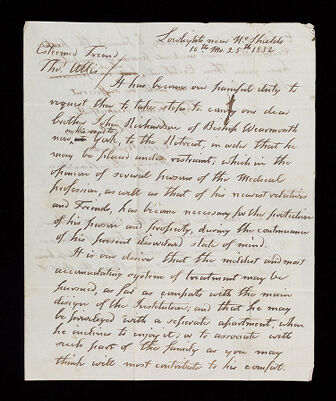 Lowlights near No Shields
10th Mo 25th 1832
Esteemed Friend
Thos Allis
It has become our painful duty to
request thee to take steps to convey our dear
brother John Richardson of Bishop Wearmouth
now at York, to the Retreat, in order that he
may be placed under restraint, which in the
opinion of several persons of the Medical
profession, as well as that of his nearest relatives
and Friends, has become necessary for the protection
of his person and property, during the continuance
of his present disordered state of mind.
It is our desire that the mildest and most
accomodating system of treatment may be
pursued, as far as comports with the main
design of the Institution; and that he may
be priviliged with a separate apartment, when
he inclines to enjoy it, or to associate with
such part of the family as you may
think will most contribute to his comfort.